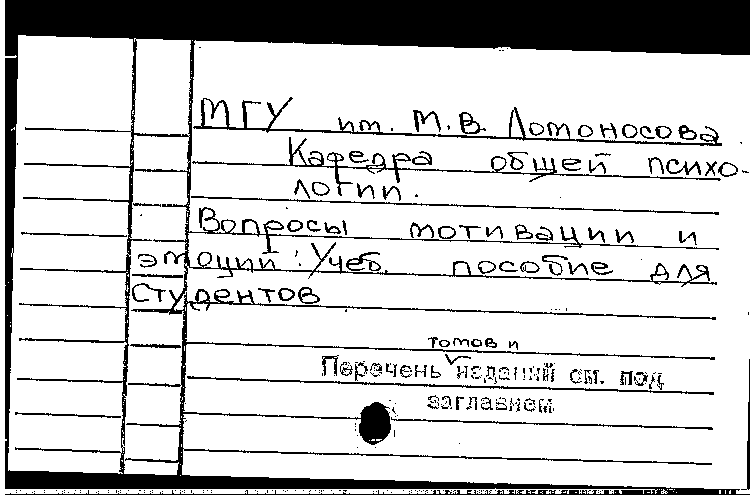 МГУ им. М.В. Ломоносова
Кафедра общей психо-
логии.
Вопросы мотивации и
эмоций: Учеб. пособие для
студентов
томов и
Перечень изданий см. под
заглавием